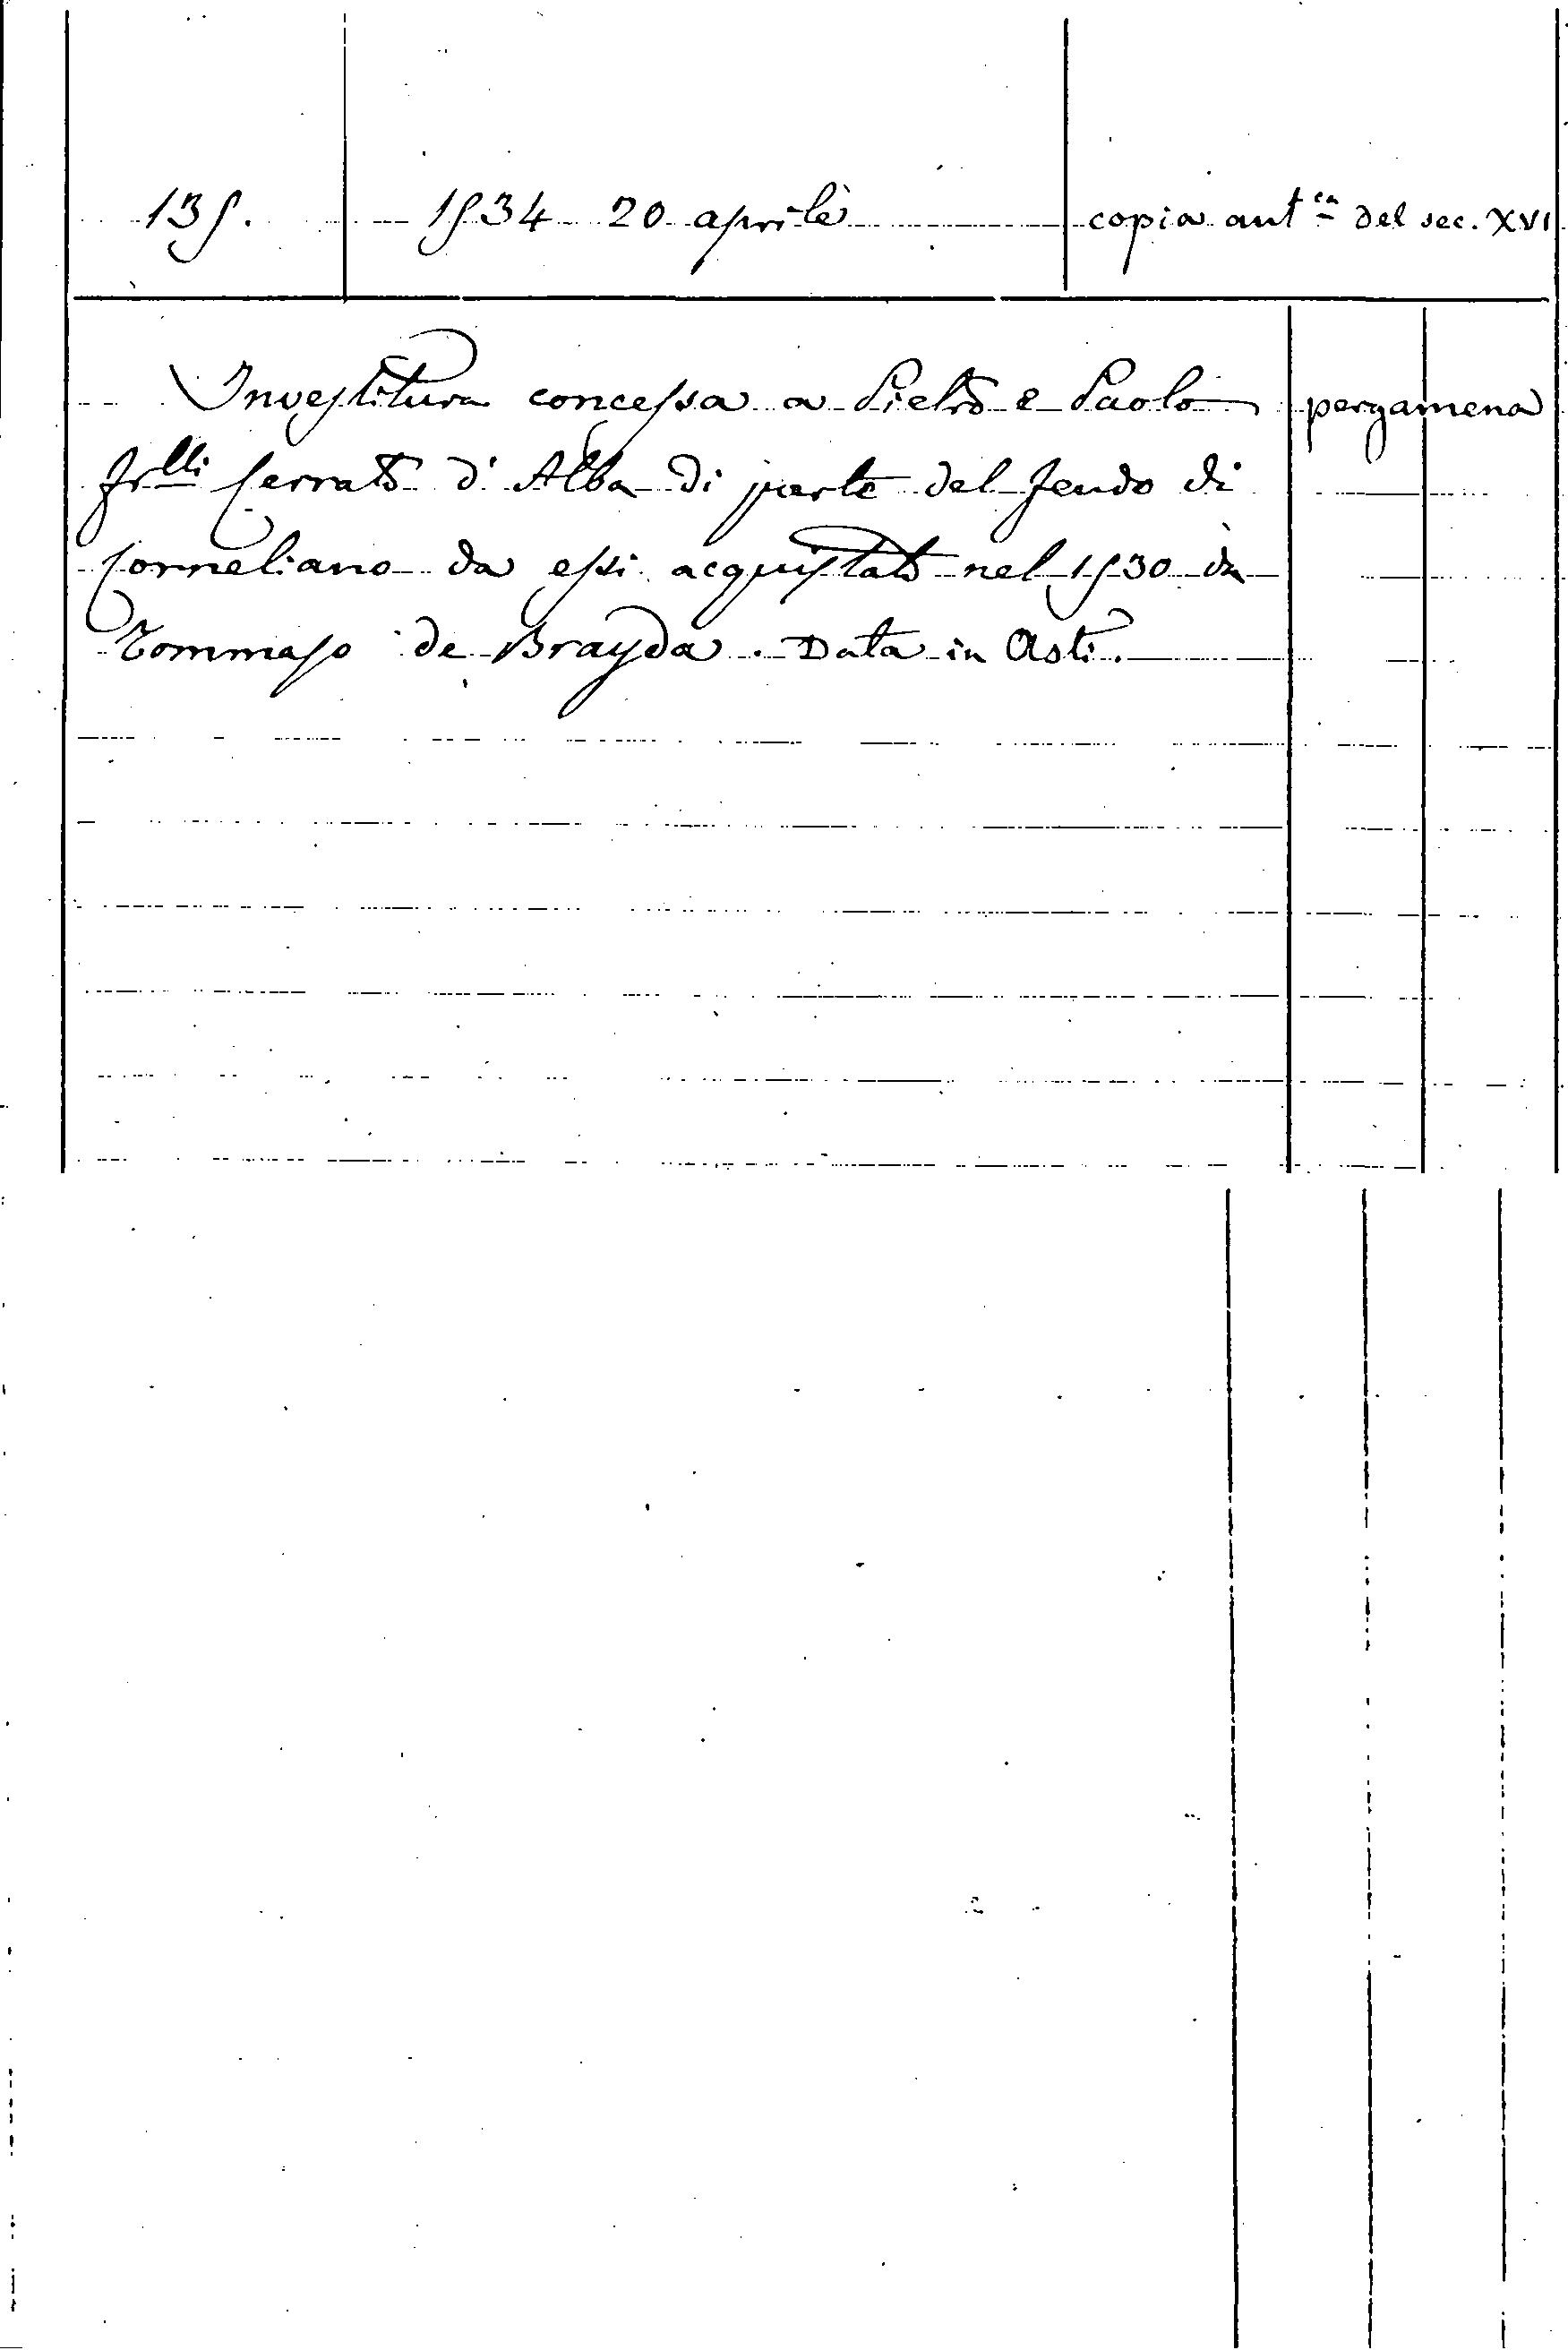 135. 1534 20 aprile copia aut.ca del sec. XVI
Investitura concessa a Pietro e Paolo pergamena
frlli Cerrato d'Alba di parte del feudo di
Corneliano da essi acquistato nel 1530 da
Tommaso de Brayda. Data in Asti.